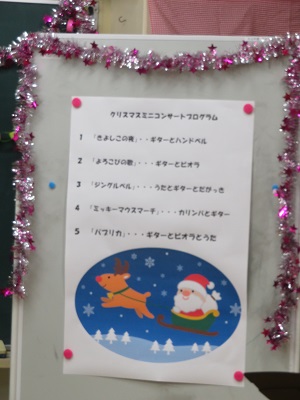 クリスマスミニコンサートプログラム
1 「きよしこの夜」・・ギターとハンドベル
2 「よろこびの歌」・・・ギターとビオラ
3 「ジングルベル」・・・うたとギターとだがっき
4 「ミッキーマウスマーチ」・・・カリンバとギター
5 「パプリカ」・・・ギターとビオラとうた